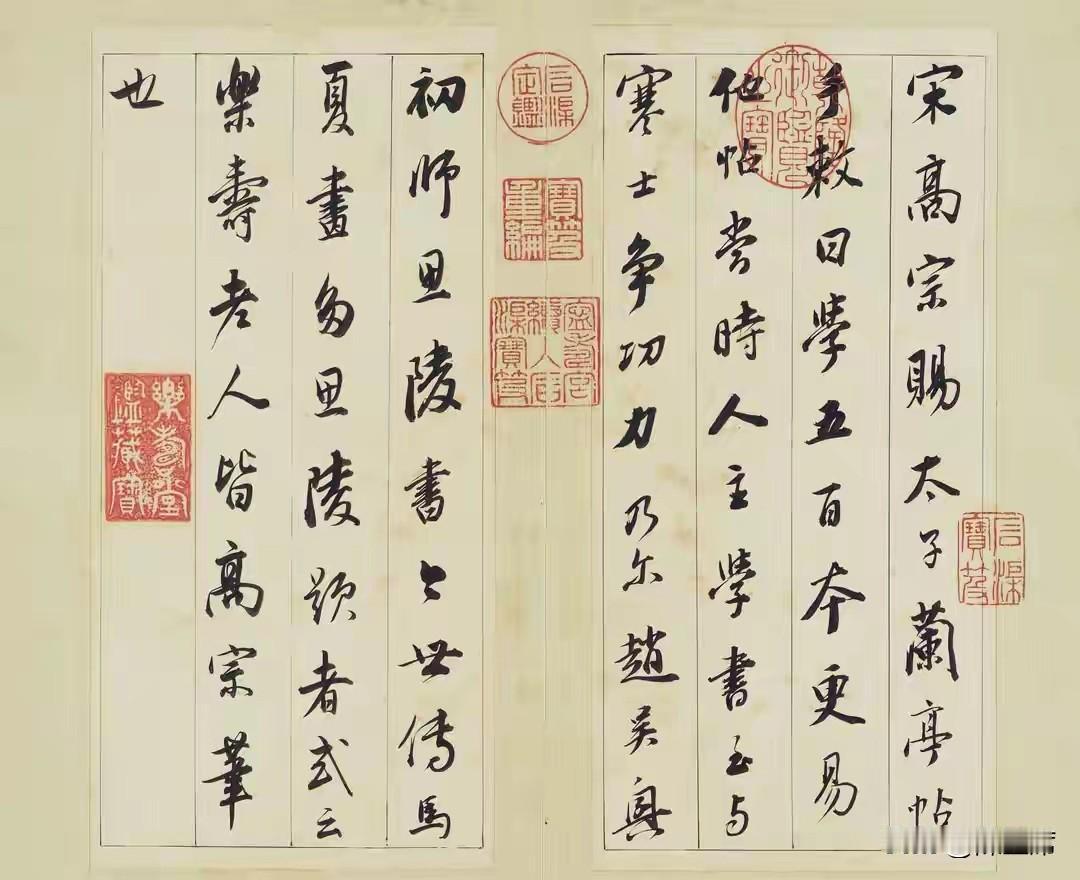 宋高宗賜太子蘭亭帖
手敕曰學五百本更易
他帖當時人主學書至与
寒士争功力乃尔趙吴興
初師思陵書〻世傳馬
夏畫多思陵題者或云
樂壽老人皆高宗筆
也
石渠定鑑
寶笈重編
寧壽宮續入石渠寶笈
石渠寶笈
樂壽堂鑑藏寶